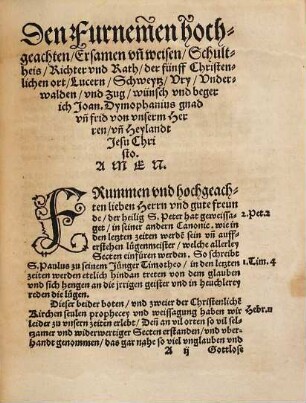 Den Furnemẽn hoch-
geachten/Ersamen vñ weisen/Schult-
theis/Richter vnd Rath/der fünff Christen-
lichen ort/Lucern/Schweytz/Vry/Vnder-
walden/vnd Zug/wünsch vnd beger
ich Joan. Dymophanius gnad
vñ frid von vnserm Her
ren/vñ Heylandt
Jesu Chri
sto.
A M E N.
FRummen vnd hochgeach-
ten lieben Herrn vnd gute freun
de/der heilig S. Peter hat geweissa- 2.Pet.2
get/in seiner andern Canonic. wie in
den letzten zeiten werdẽ sein vñ auff-
erstehen lügenmeister/welche allerley
Secten einfüren werden. So schreibt
S. Paulus zu seinem Jünger Timotheo/in den letzten 1.Tim.4
zeiten werden etelich hindan tretten von dem glauben
vnd sich hengen an die jrrigen geister vnd in heuchlerey
reden die lügen.
Dieser beider boten/vnd zweier der Christenlichẽ
Kirchen seulen prophecey vnd weissagung haben wir
leider zu vnsern zeiten erlebt/Deñ an vil orten so vil sel-
tzamer vnd widerwertiger Secten erstanden/vnd vber-
handt genommen/das gar nahe so viel vnglauben vnd
A ij Gottlose